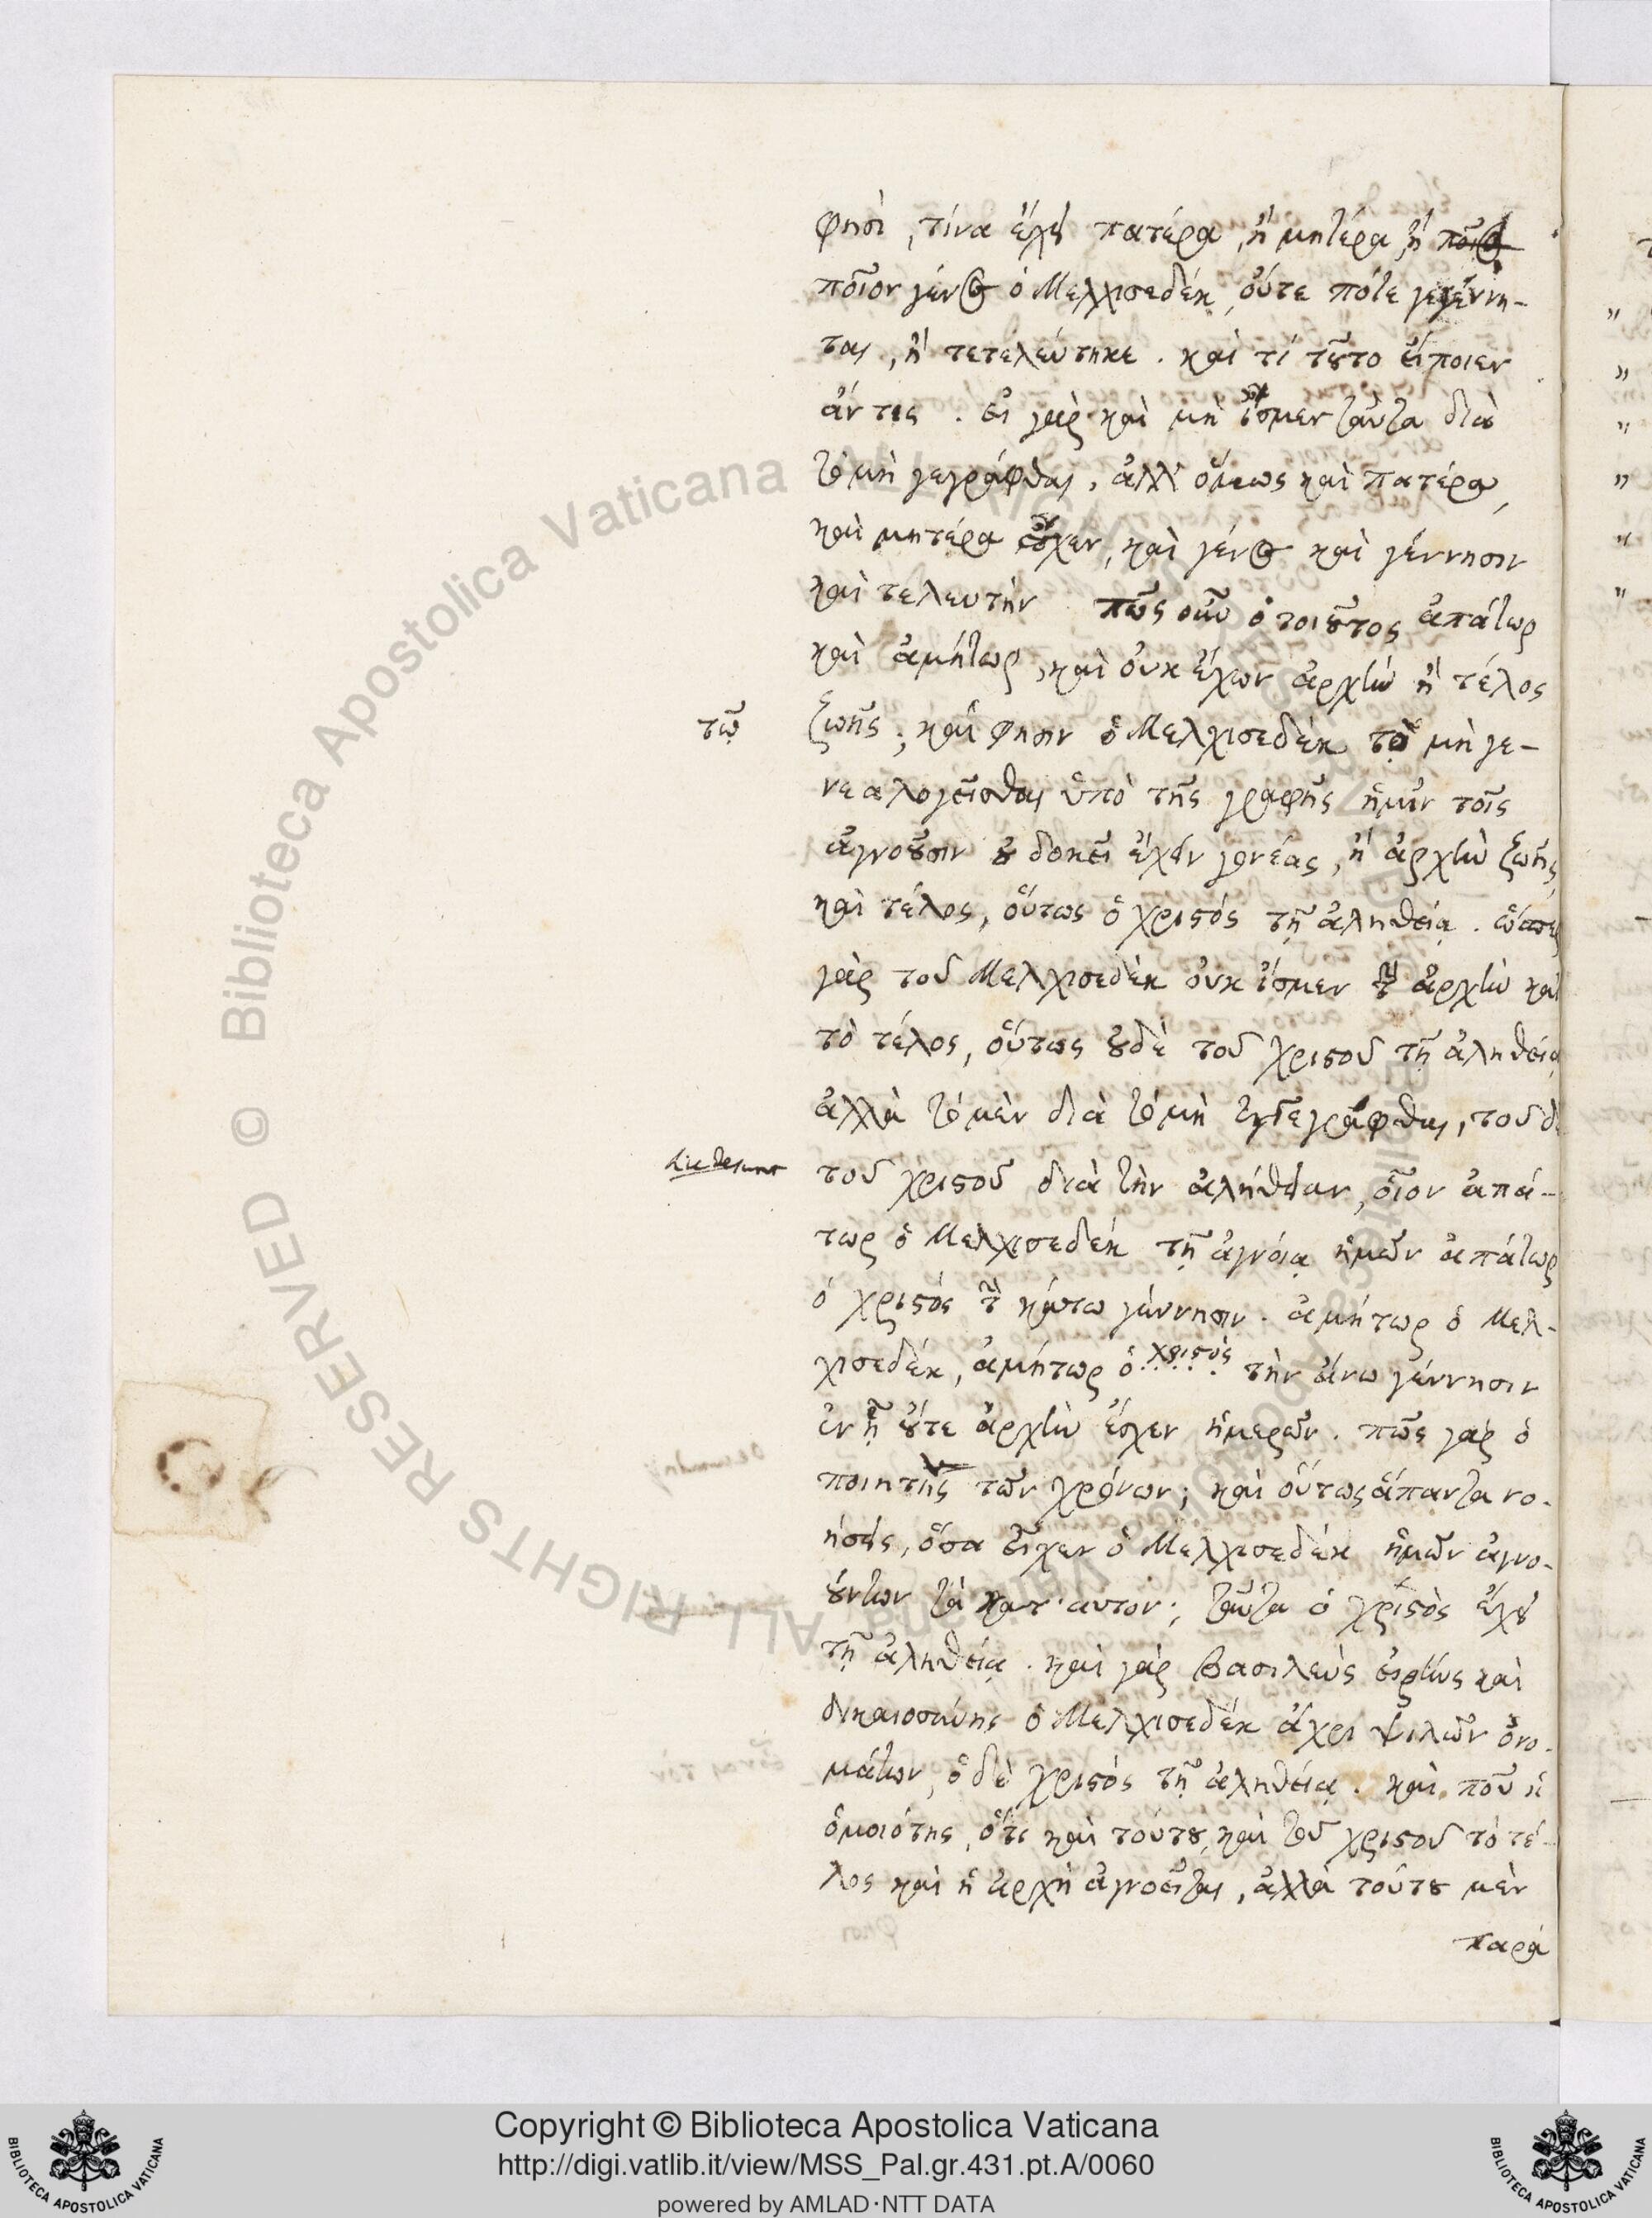 φησὶ, τίνα ἔχει πατέρα, ἢ μητέρα, ἢ
ποῖον γένος ὁ Μελχισεδέκ, οὔτε πότε γεγέννη-
ται, ἢ τετελεύτηκε. καὶ τί τοῦτο εἴποιεν
ἄν τις. εἰ γὰρ καὶ μὴ ἴσμεν ταῦτα διὰ
τὸ μὴ γεγράφθαι, ἀλλ' ὅμως καὶ πατέρα,
καὶ μητέρα ἔσχεν, καὶ γένος καὶ γέννησιν
καὶ τελευτὴν. πῶς οὖν ὁ τοιοῦτος ἀπάτωρ
καὶ ἀμήτωρ, καὶ οὐκ ἔχων ἀρχὴν ἢ τέλος
τῷ
ζωῆς; καί φησιν ὁ Μελχισεδὲκ τῷ μὴ γε-
νεαλογεῖσθαι ὑπὸ τῆς γραφῆς ἡμῖν τοῖς
ἀγνοοῦσιν οὐ δοκεῖ ἔχειν γονέας, ἢ ἀρχὴν ζωῆς
καὶ τέλος, οὕτως ὁ χριστός τῇ ἀληθείᾳ. ὥσπερ
γὰρ τοῦ Μελχισεδὲκ οὐκ ἴσμεν τὴν ἀρχὴν καὶ
τὸ τέλος, οὕτως οὐδὲ τοῦ χριστοῦ τῇ ἀληθείᾳ
ἀλλὰ τὸ μὲν διὰ τὸ μὴ γεγράφθαι, τοῦ δὲ
hic desunt
τοῦ χριστοῦ διὰ τὴν ἀλήθειαν, οἷον ἀπά-
τωρ ὁ Μελχισεδέκ τῇ ἀγνοίᾳ ἡμῶν ἀπάτωρ
ὁ χριστός τὴν κάτω γέννησιν. ἀμήτωρ ὁ Μελ-
χισεδέκ, ἀμήτωρ ὁ χριστὸς τὴν ἄνω γέννησιν
ἐν ᾗ οὔτε ἀρχὴν ἔσχεν ἡμερῶν. πῶς γὰρ ὁ
ποιητὴς τῶν χρόνων; καὶ οὕτως ἅπαντα νο-
ήσεις, ὅσα εἶχεν ὁ Μελχισεδέκ ἡμῶν ἀγνο-
ούντων τὰ κατ' αὐτόν; ταῦτα ὁ χριστὸς ἔχει
τῇ ἀληθείᾳ. καὶ γὰρ βασιλεὺς εἰρήνης καὶ
δικαιοσύνης ὁ Μελχισεδέκ ἄχρι ψιλῶν ὀνο-
μάτων, ὁ δὲ χριστός τῇ ἀληθείᾳ. καὶ ποῦ ἡ
ὁμοιότης, ὅτι καὶ τούτου καὶ τοῦ χριστοῦ τὸ τέ-
λος καὶ ἡ ἀρχὴ ἀγνοεῖται, ἀλλὰ τούτου μὲν
παρὰ
© Biblioteca Apostolica Vaticana ALL RIGHTS RESERVED
Copyright © Biblioteca Apostolica Vaticana
http://digi.vatlib.it/view/MSS_Pal.gr.431.pt.A/0060
powered by AMLAD·NTT DATA
BIBLIOTECA APOSTOLICA VATICANA
BIBLIOTECA APOSTOLICA VATICANA